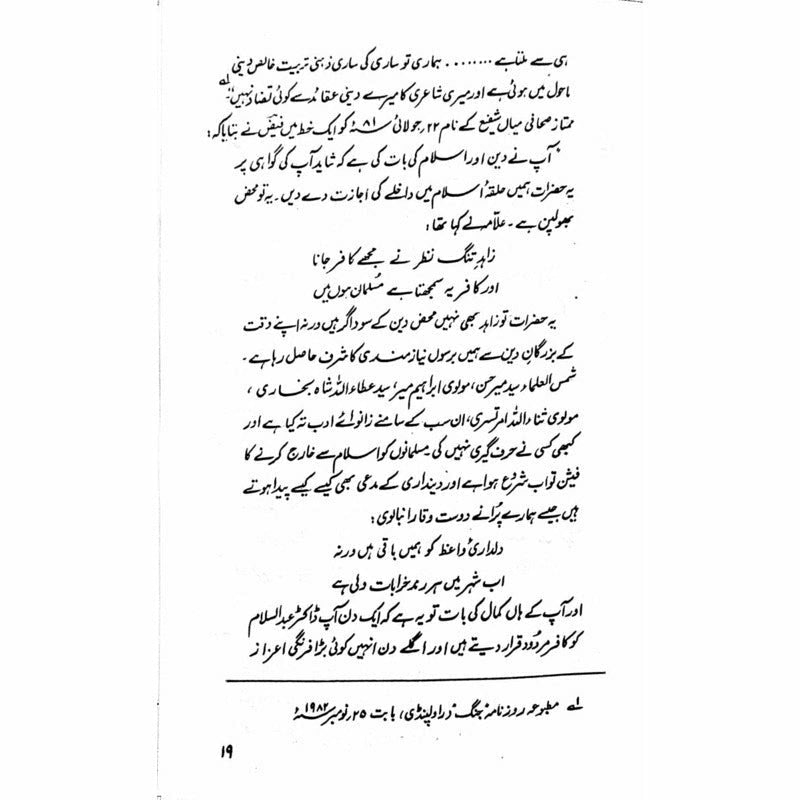 ہی سے ملتا ہے ........ ہماری تو ساری کی ساری ذہنی تربیت خالص دینی
ماحول میں ہوئی ہے اور میری شاعری کا میرے دینی عقائد سے کوئی تضاد نہیں" ۱ے
ممتاز صحافی میاں شفیع کے نام ۲۲؍جولائی ۸۱ء کو ایک خط میں فیض نے بتایا کہ:
"آپ نے دین اور اسلام کی بات کی ہے کہ شاید آپ کی گواہی پر
یہ حضرات ہمیں حلقۂ اسلام میں داخلے کی اجازت دے دیں۔ یہ تو محض
بھولپن ہے۔ علامہ نے کہا تھا:
زاہدِ تنگ نظر نے مجھے کافر جانا
اور کافر یہ سمجھتا ہے مُسلمان ہوں میں
یہ حضرات تو زاہد بھی نہیں محض دین کے سوداگر ہیں ورنہ اپنے وقت
کے بزرگانِ دین سے ہمیں برسوں نیاز مندی کا شرف حاصل رہا ہے۔
شمس العلماء سید میر حسن، مولوی ابراہیم میر، سید عطاء اللہ شاہ بخاری،
مولوی ثناء اللہ امرتسری، ان سب کے سامنے زانوئے ادب تہ کیا ہے اور
کبھی کسی نے حرف گیری نہیں کی مسلمانوں کو اسلام سے خارج کرنے کا
فیشن تو اب شروع ہوا ہے اور دینداری کے مدعی بھی کیسے کیسے پیدا ہوتے
ہیں جیسے ہمارے پُرانے دوست وقار انبالوی:
دلداریٔ واعظ کو ہمیں باقی ہیں ورنہ
اب شہر میں ہر رندِ خرابات ولی ہے
اور آپ کے ہاں کمال کی بات تو یہ ہے کہ ایک دن آپ ڈاکٹر عبدالسلام
کو کافر مردُود قرار دیتے ہیں اور اگلے دن انہیں کوئی بڑا فرنگی اعزاز
۱ے مطبوعہ روزنامہ "جنگ" (راولپنڈی)، بابت ۲۵؍نومبر ۱۹۸۲ء
۱۹